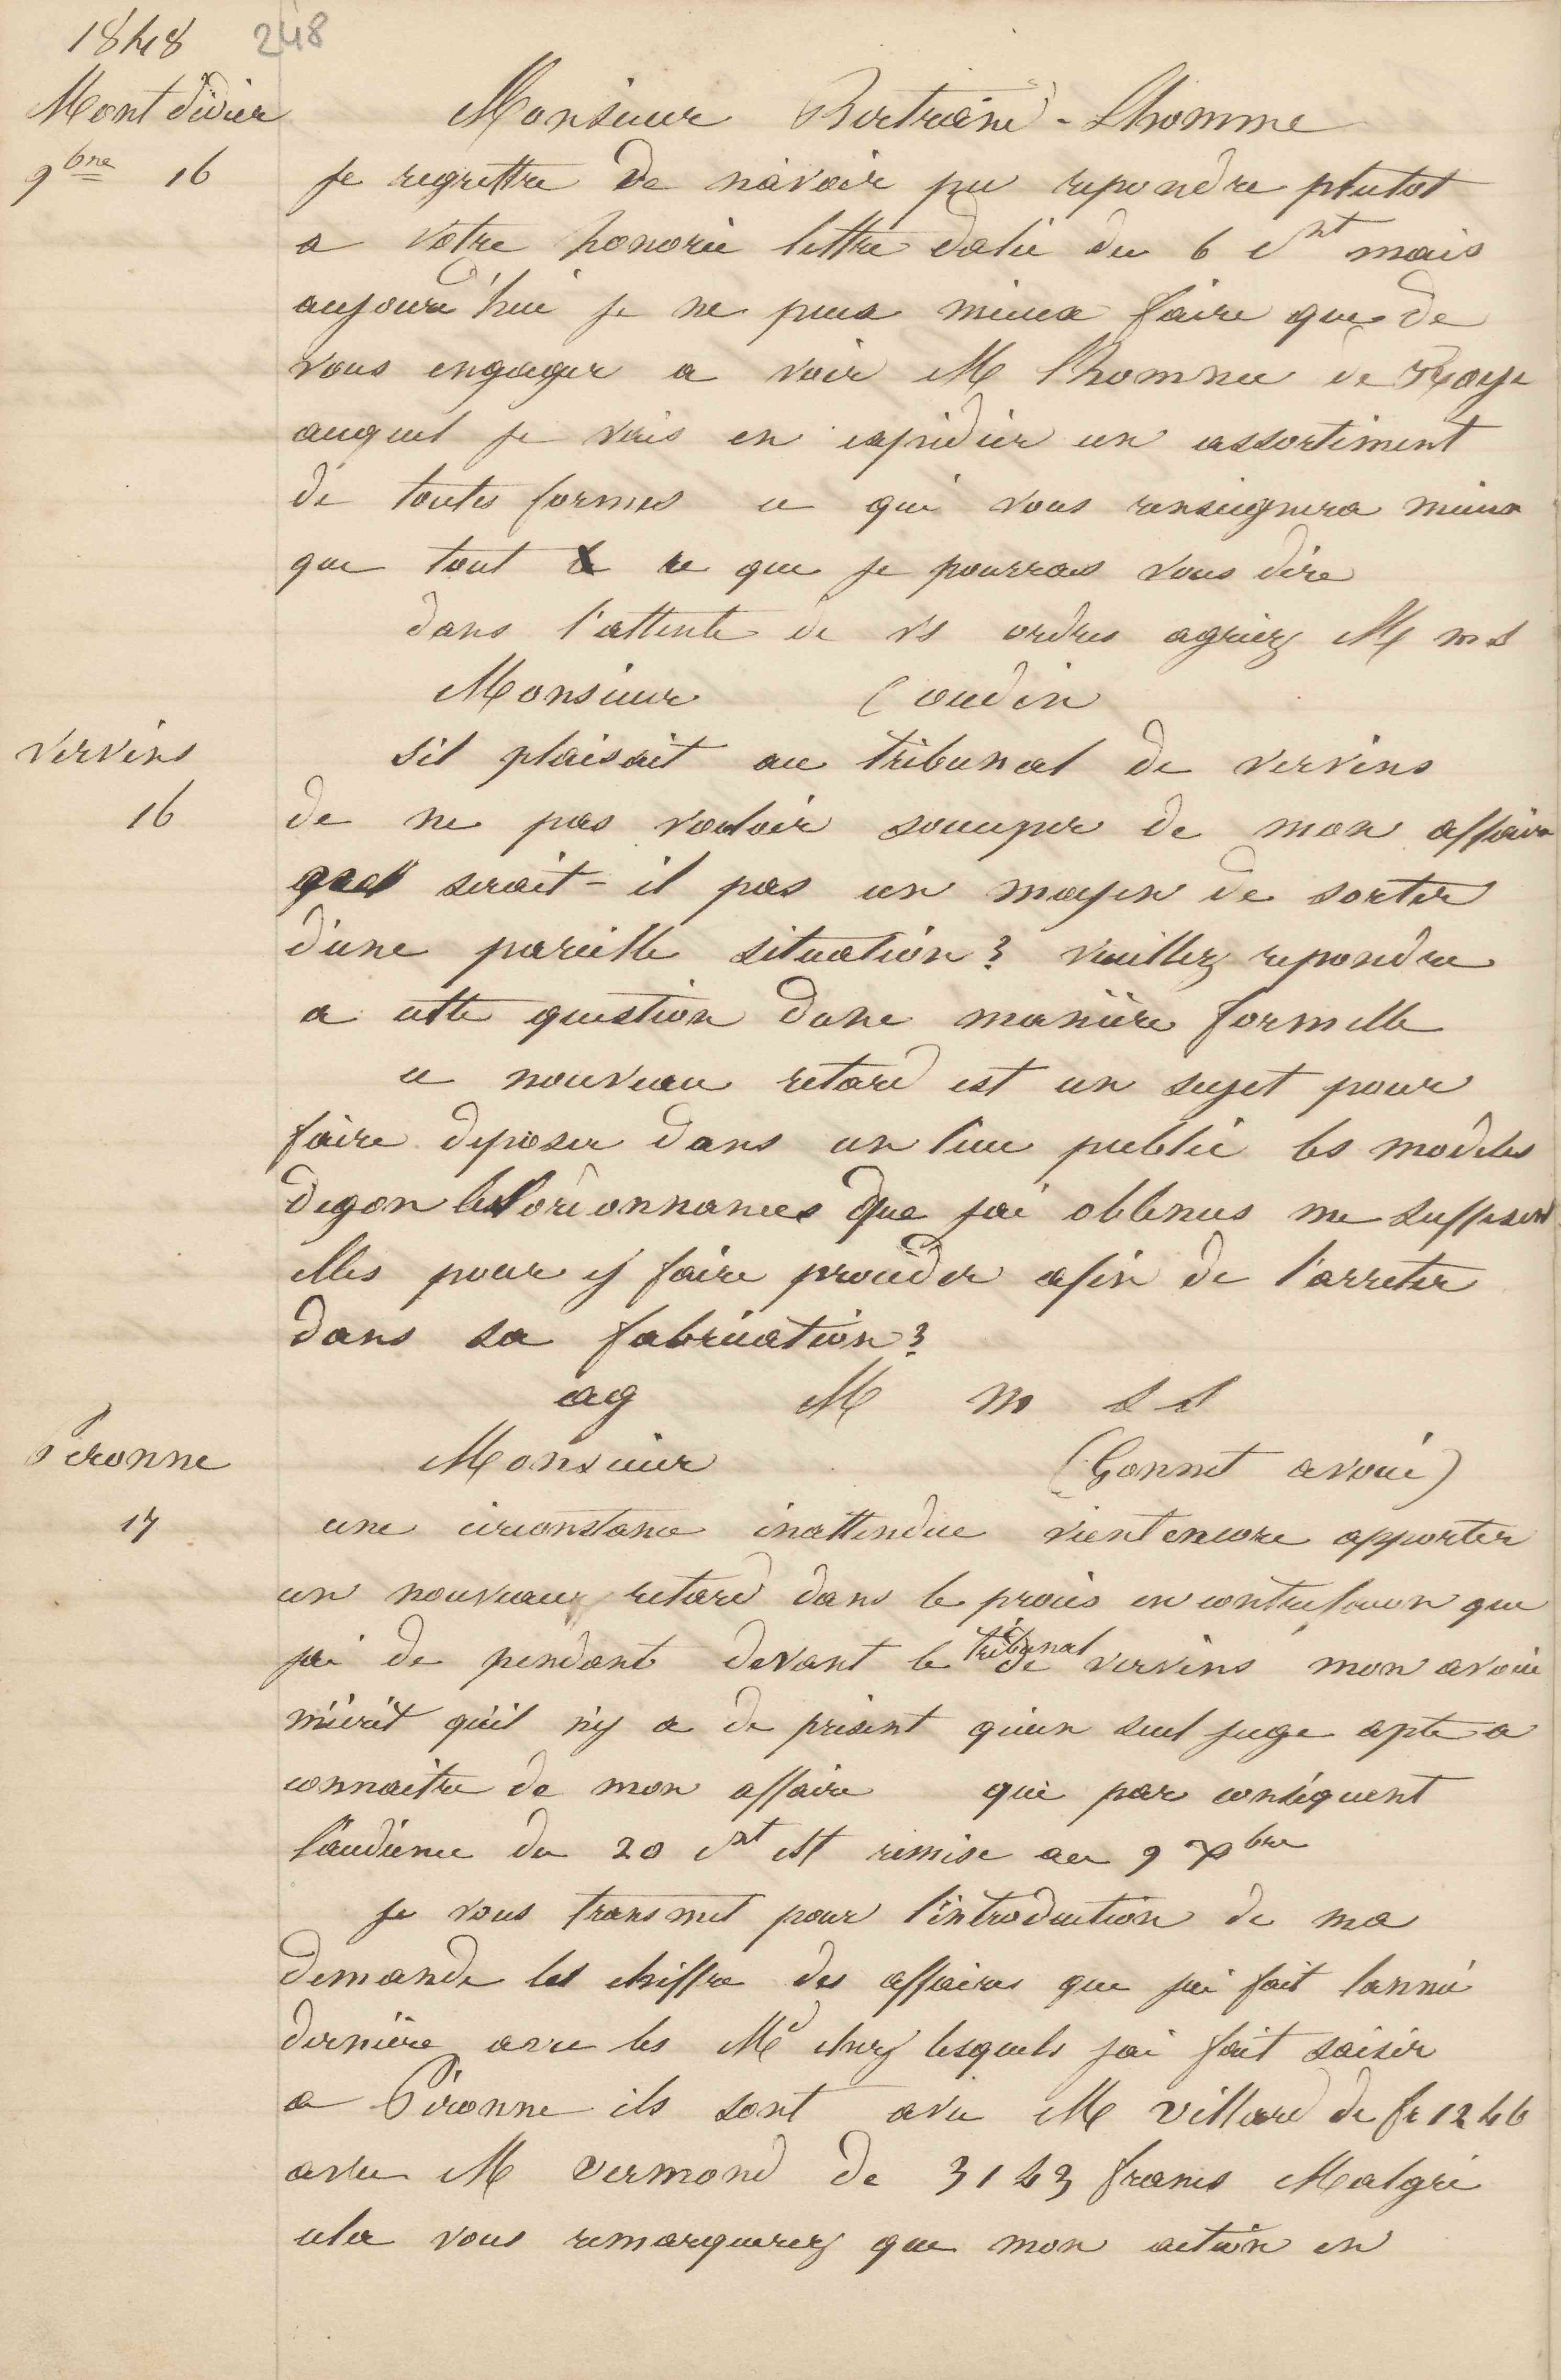 1848 248
Montdidier
9bre 16
Monsieur Bertrand-Lhomme
je regrettre de n'avoir pu repondre plutot
a votre honorée lettre datée du 6 ct mais
aujourd'hui je ne puis mieux faire que de
vous engager a voir M lhomme de Roye
auquel je vais en expédier un assortiment
de toutes formes ce qui vous renseignera mieux
que tout ce que je pourrais vous dire
dans l'attente de vs ordres agriez M m s
Vervins
16
Monsieur (oudin
sil plaisait au tribunal de vervins
de ne pas vouloir soccuper de mon affaire
quel serait-il pas un moyen de sortir
d'une pareille situation? veuillez repondre
a cette question dune manière formelle
ce nouveau retard est un sujet pour
faire deposer dans un lieu public les modeles
degon les ordonnances que jai obtenus me suffisent
elles pour y faire proceder afin de l'arreter
dans sa fabrication?
ag M m s s
Peronne
17
Monsieur (Gonnet avoué)
une circonstance inattendue vient encore apporter
un nouveau retard dans le procès en contrefacon que
jai de pendant devant le tribunal de vervins mon avoué
m'écrit qu'il n'y a de présent qu'un seul juge apte a
connaitre de mon affaire que par conséquent
l'audience du 20 ct est remise au 9 xbre
je vous transmet pour l'introduction de ma
demande les chiffre des affaires que jai fait lanné
dernière avec les Md chez lesquels jai fait saisir
a Péronne ils sont avec M villard de fr 1246
avec M vermond de 3143 francs Malgré
cela vous remarquerez que mon action en